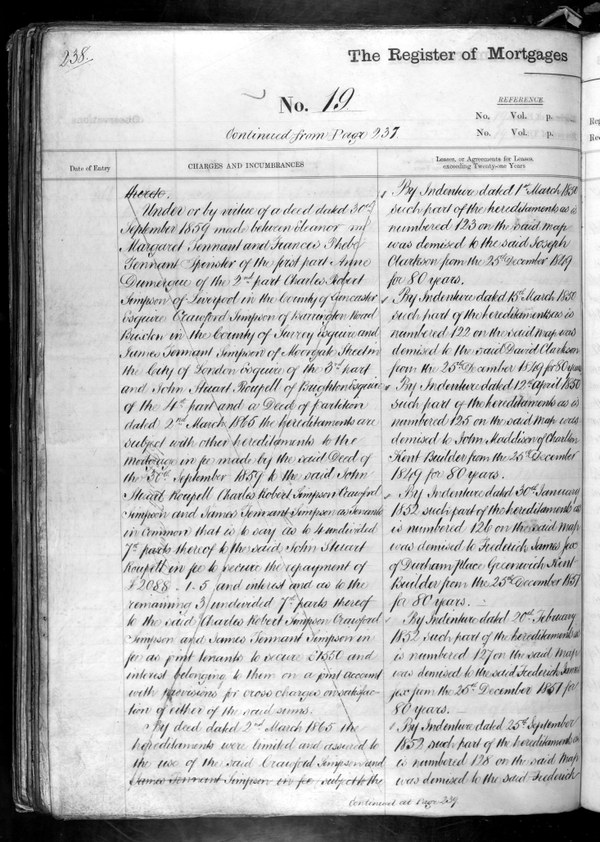 238.
The Register of Mortgages
No. 19
Continued from Page 237
REFERENCE.
No. Vol. p.
No. Vol. p.
Date of Entry
CHARGES AND INCUMBRANCES
Leases, or Agreements for Leases,
exceeding Twenty-one Years
thereto.
Under or by virtue of a deed dated 30th
September 1859 made between Eleanor
Margaret Tennant and Frances Phebe
Tennant Spinster of the first part Anne
Dumergue of the 2nd part Charles Robert
Simpson of Liverpool in the County of Lancaster
Esquire Crawford Simpson of Barrington Road
Brixton in the County of Surrey Esquire and
James Tennant Simpson of Moorgate Street in
the City of London Esquire of the 3rd part
and John Stuart Roupell of Brighton Esquire
of the 4th part and a Deed of Partition
dated 2nd March 1865 the hereditaments are
subject with other hereditaments to the
Mortgage in fee made by the said Deed of
the 30th September 1859 to the said John
Stuart Roupell Charles Robert Simpson Crawford
Simpson and James Tennant Simpson as Tenants
in Common that is to say as to 4 undivided
7th parts thereof to the said John Stuart
Roupell in fee to secure the repayment of
£2088.1.5 and interest and as to the
remaining 3 undivided 7th parts thereof
to the said Charles Robert Simpson Crawford
Simpson and James Tennant Simpson in
fee as joint tenants to secure £1550 and
interest belonging to them on a joint account
with provisions for cross charges on satisfac-
tion of either of the said sums.
By deed dated 2nd March 1865 the
hereditaments were limited and assured to
the use of the said Crawford Simpson and
James Tennant Simpson in fee subject to the
By Indenture dated 1st March 1850
such part of the hereditaments as is
numbered 123 on the said map
was demised to the said Joseph
Clarkson from the 25th December 1849
for 80 years.
By Indenture dated 15th March 1850
such part of the hereditaments as is
numbered 122 on the said Map was
demised to the said David Clarkson
from the 25th December 1849 for 80 years
By Indenture dated 12th April 1850
such part of the hereditaments as is
numbered 125 on the said Map was
demised to John Maddison of Charlton
Kent Builder from the 25th December
1849 for 80 years.
By Indenture dated 30th January
1852 such part of the hereditaments as
is numbered 126 on the said Map
was demised to Frederick James Jex
of Durham Place Greenwich Kent
Builder from the 25th December 1851
for 80 years.
By Indenture dated 20th February
1852 such part of the hereditaments as
is numbered 127 on the said Map
was demised to the said Frederick James
Jex from the 25th December 1851 for
80 years.
By Indenture dated 25th September
1852 such part of the hereditaments as
is numbered 128 on the said Map
was demised to the said Frederick
Continued at Page 239